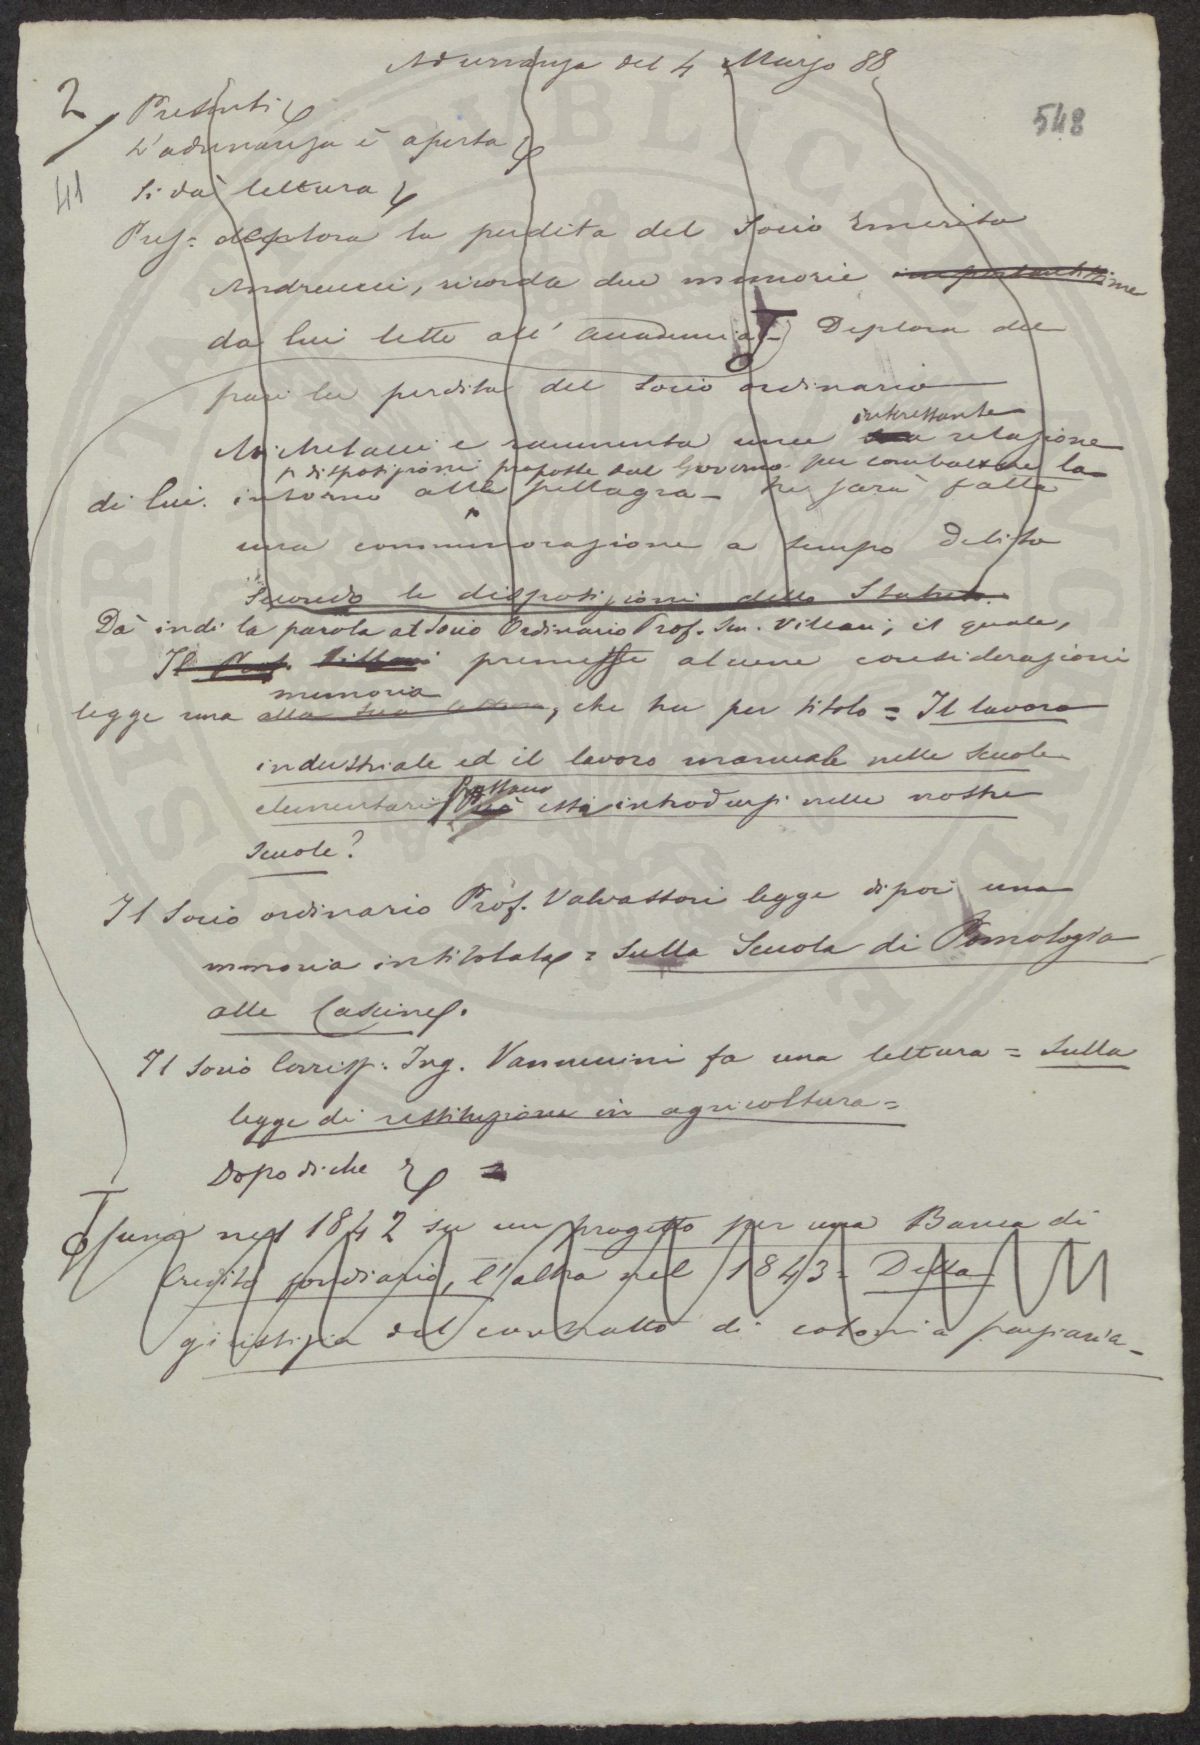 Adunanza del 4 Marzo 88
2
548
Presenti
L'adunanza è aperta
41
Si dà lettura
Pres: deplora la perdita del Socio Emerito
Andreucci, ricorda due memorie importantissime
da lui lette all' accademia - Deplora del
pari la perdita del Socio ordinario
Michelacci e rammenta una interessante relazione
disposizioni proposte dal Governo per combattere la
di lui intorno alle pellagra - Ne sarà fatta
una commemorazione a tempo debito
Secondo le disposizioni dello Statuto.
Dà indi la parola al Socio Ordinario Prof. Sen. Villari, il quale,
Il Prof. Villari premesse alcune considerazioni
memoria
legge una alla sua, che ha per titolo = Il lavoro
industriale ed il lavoro manuale nelle Scuole
elementari possono essi introdursi nelle nostre
Scuole?
Il Socio ordinario Prof. Valvassori legge dipoi una
memoria intitolata = Sulla Scuola di Pomologia
alle Cascine.
Il Socio Corrisp: Ing. Vannuccini fa una lettura = Sulla
legge di restituzione in agricoltura =
Dopo di che
l'una nel 1842 su un progetto per una Banca di
Credito fondiario, l'altra nel 1843 = Della
giustizia del contratto di colonia parziaria -